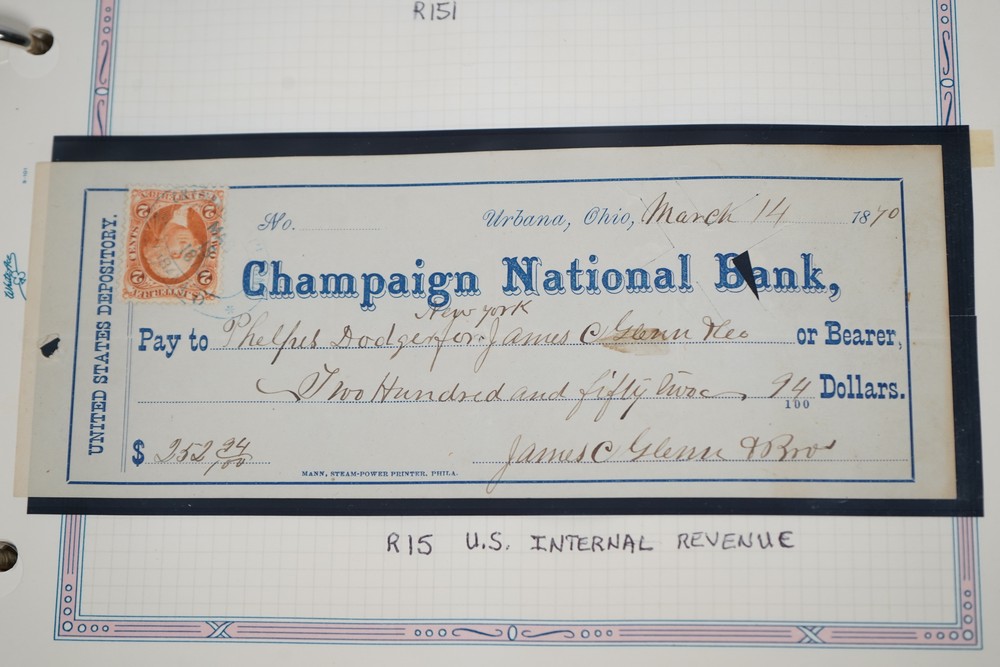 R151
No. Urbana, Ohio, March 14 1870
Champaign National Bank,
New York
Pay to Phelps Dodge for James C Glenn &Co or Bearer,
Two Hundred and fifty two 94/100 Dollars.
$ 252 94/100 James C Glenn & Bros
MANN, STEAM-POWER PRINTER, PHILA.
UNITED STATES DEPOSITORY.
2 2
CENTS
2 2
R15 U.S. INTERNAL REVENUE